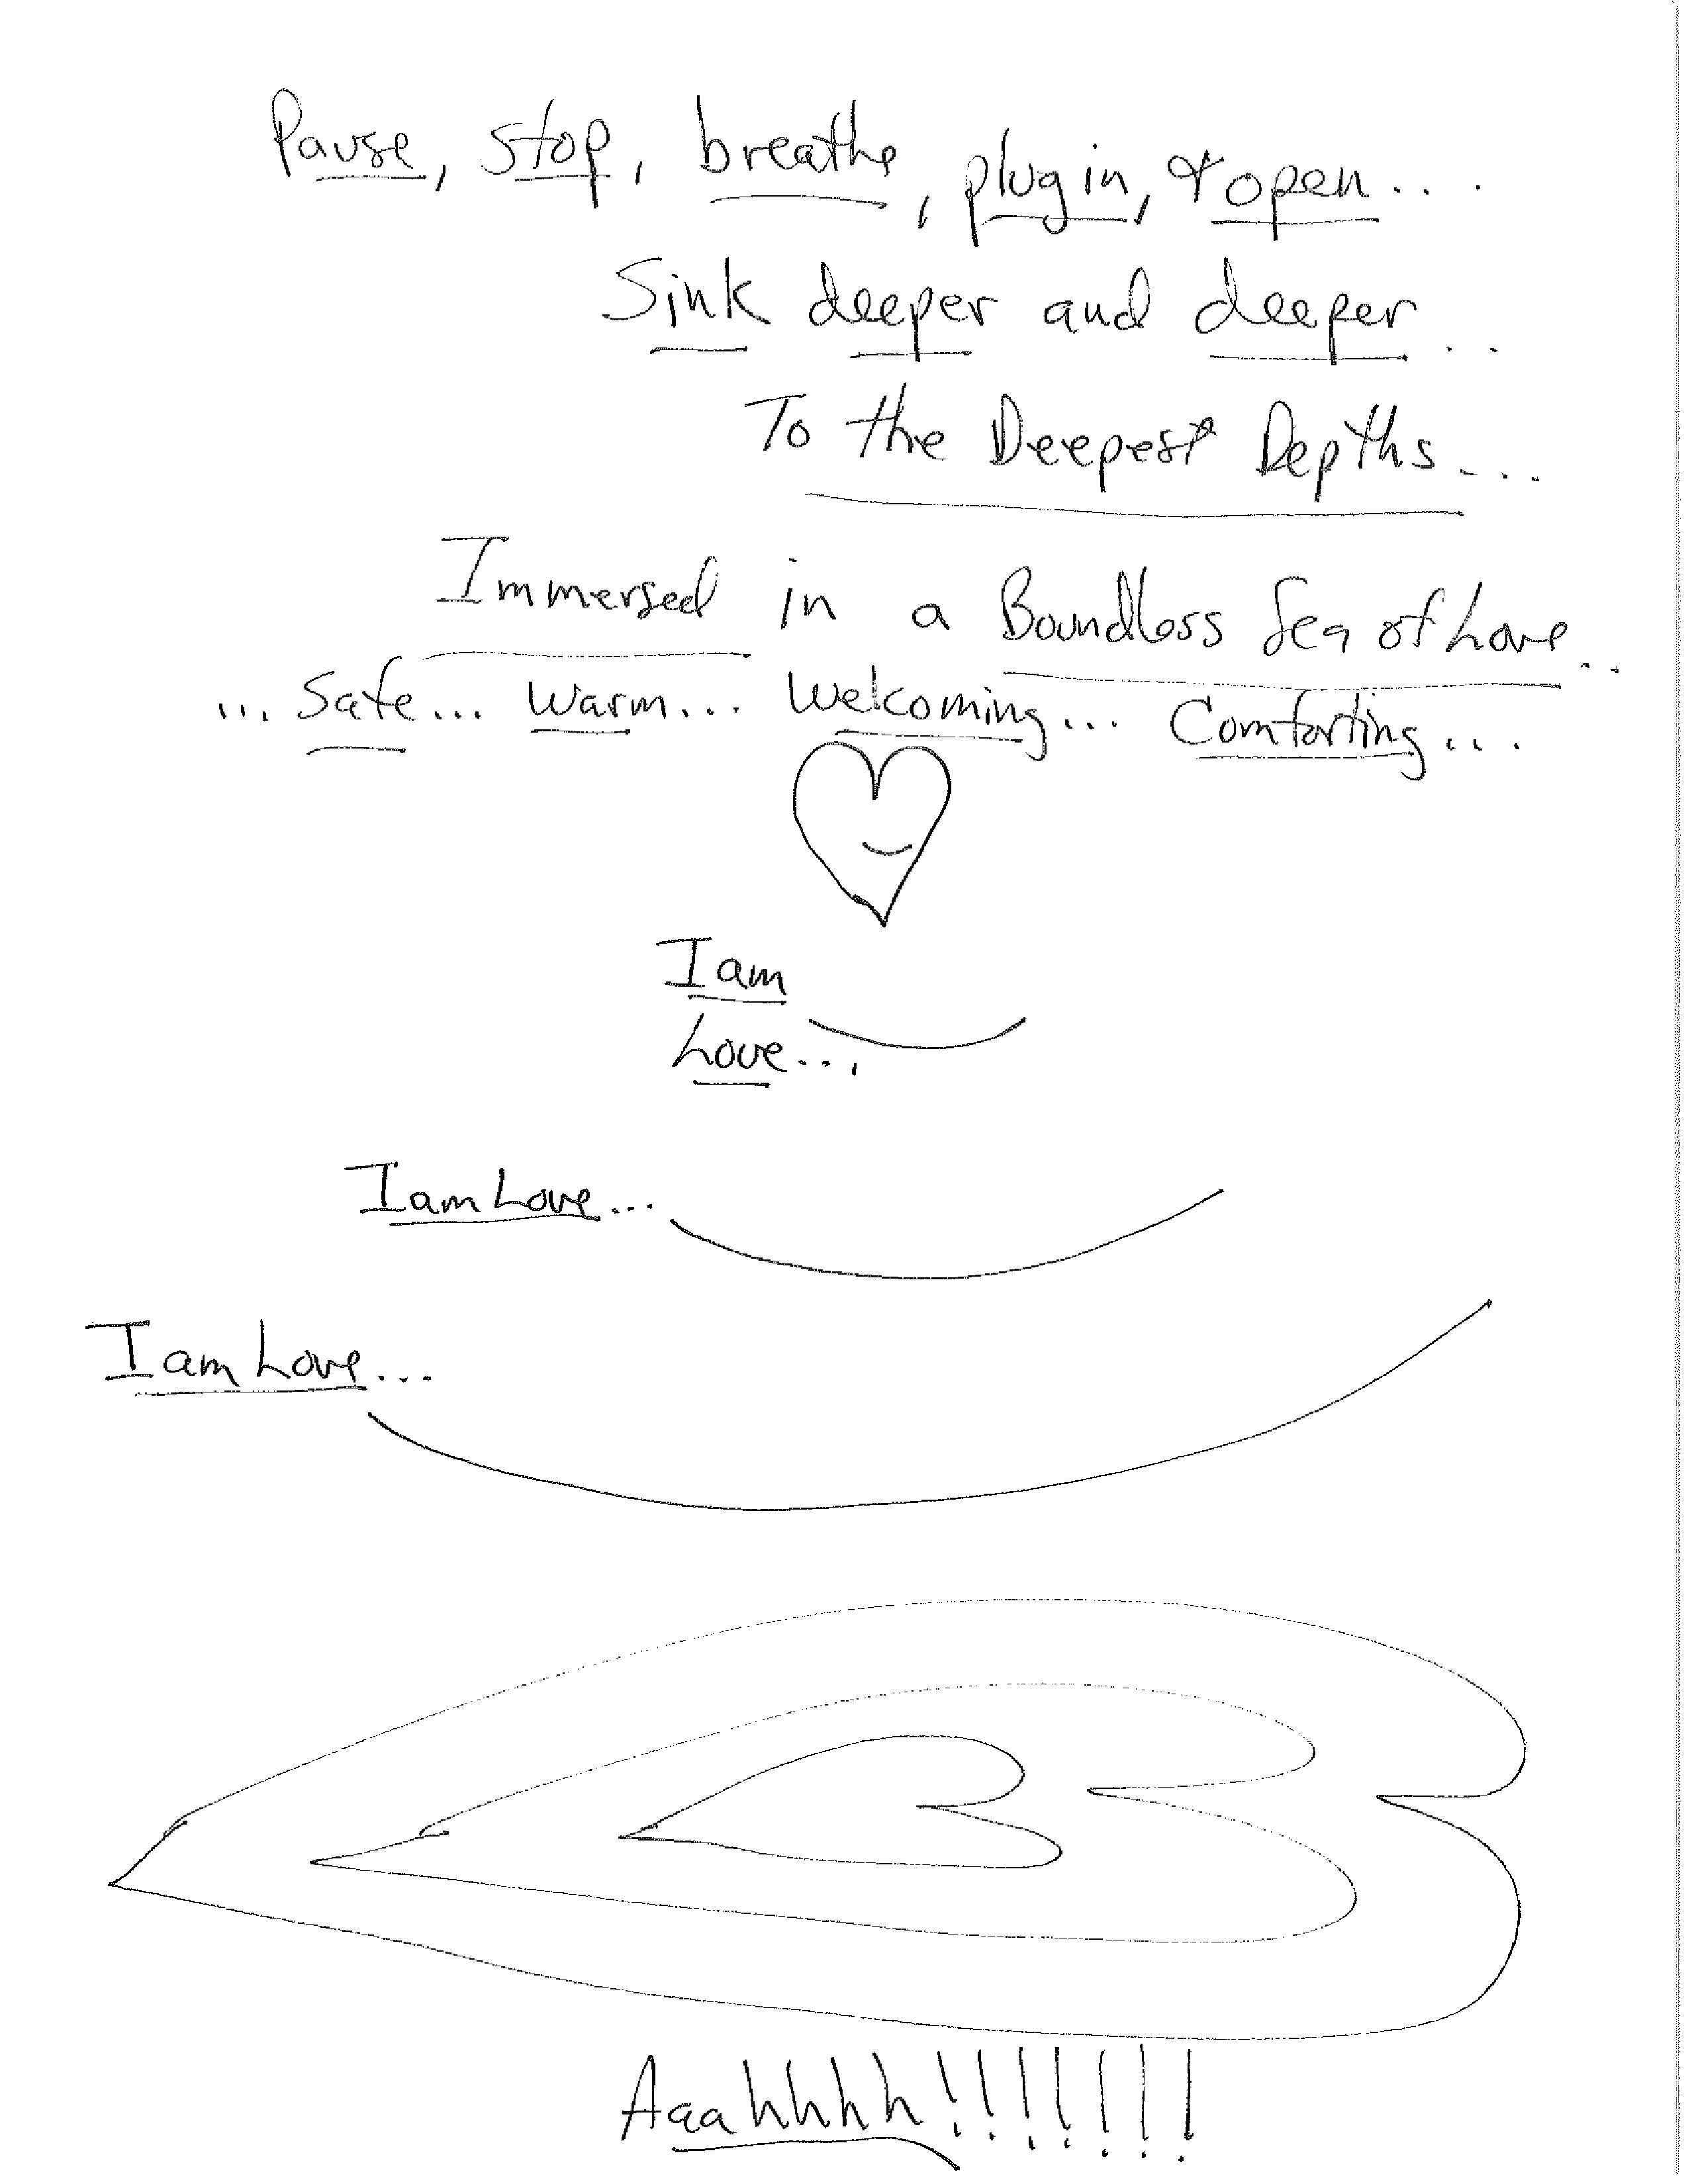 Pause, stop, breathe, plug in, & open....
Sink deeper and deeper...
To the Deepest Depths....
Immersed in a Boundless Sea of Love...
... Safe... Warm... Welcoming... Comforting....
I am
Love...
I am Love...
I am Love...
Aaahhhh!!!!!!!